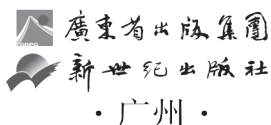 廣東省出版集團
新世纪出版社
·广州·